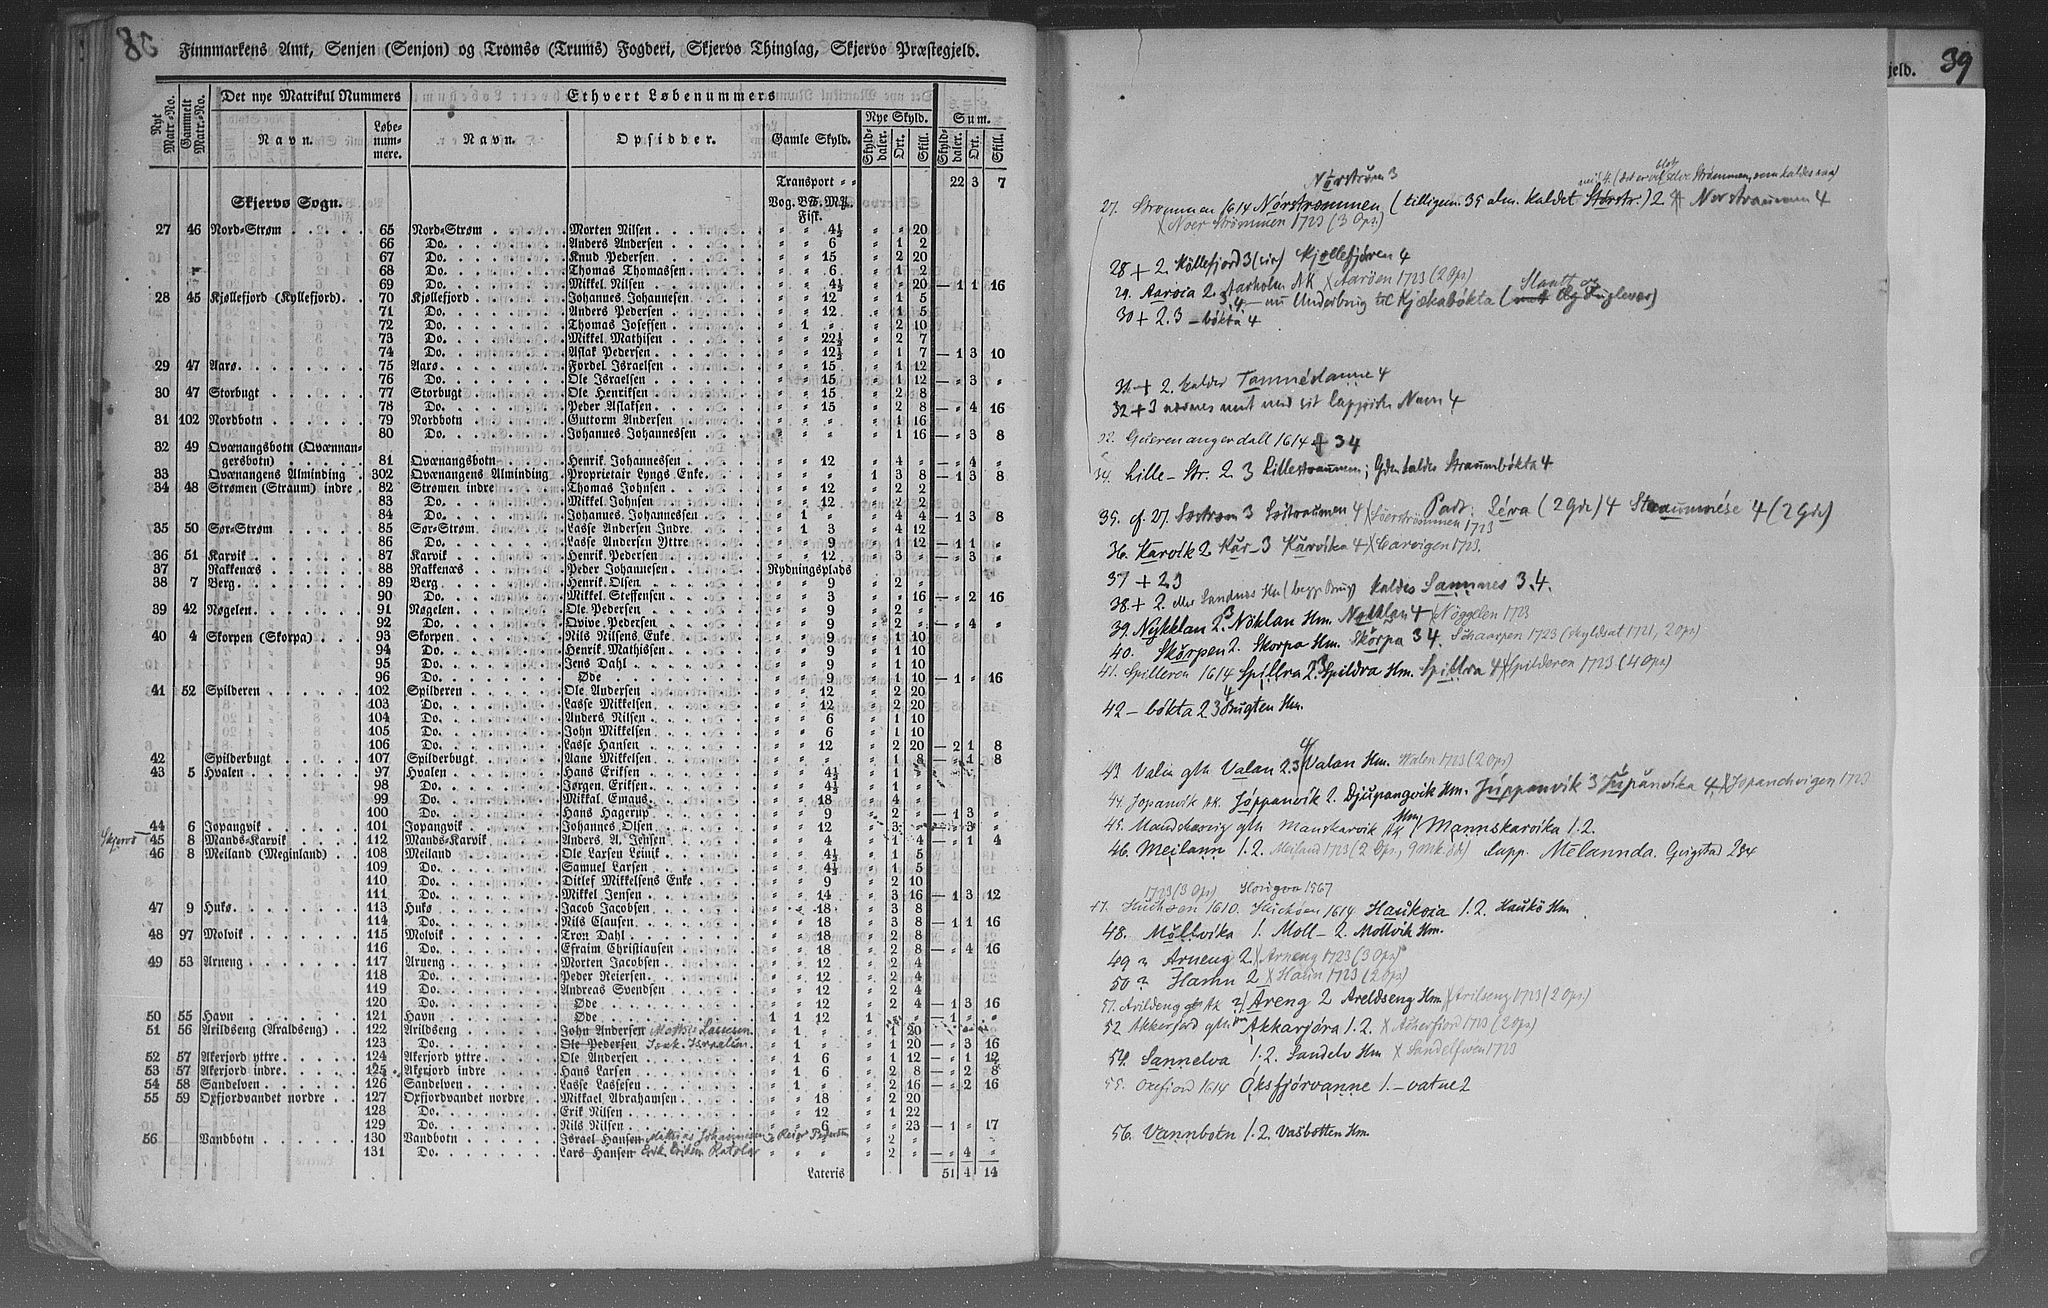 38
Finnmarkens Amt, Senjen (Senjon) og Tromsø (Trums) Fogderi, Skjervø Thinglag, Skjervø Præstegjeld.
Nyt Matr.-No. Gammelt Matr.-No. Det nye Matrikul Nummers Ethvert Løbenummers
Navn. Løbe-num-mere. Navn. Opsidder. Gamle Skyld. Nye Skyld. Sum.
Skylddaler. Ort. Skill. Skylddaler. Ort. Skill.
Transport 22 3 7
Skjervø Sogn. Vog. Fisk.
27 46 Nord-Strøm 65 Nord-Strøm Morten Nilsen " " 4½ " " 20
66 Do. Anders Andersen " " 6 " 1 2
67 Do. Knud Pedersen " " 15 " 2 20
68 Do. Thomas Thomassen " " 6 " 1 2
69 Do. Mikkel Nilsen " " 4½ " " 20 — 1 1 16
28 45 Kjøllefjord (Kyllefjord) 70 Kjøllefjord Johannes Johannesen " " 12 " 1 5
71 Do. Anders Pedersen " " 12 " 1 5
72 Do. Thomas Josefsen " 1 " " 2 10
73 Do. Mikkel Mathisen " " 22½ " 2 7
74 Do. Aslak Pedersen " " 12½ " 1 7 — 1 3 10
29 47 Aarø 75 Aarø Fordel Israelsen " " 15 " 1 12
76 Do. Ole Israelsen " " 15 " 1 12 — " 3 "
30 47 Storbugt 77 Storbugt Ole Henriksen " " 15 " 2 8
78 Do. Peder Aslaksen " " 15 " 2 8 — " 4 16
31 102 Nordbotn 79 Nordbotn Guttorm Andersen " " " " 1 16
80 Do. Johannes Johannessen " " " " 1 16 — " 3 8
32 49 Qvænangsbotn (Qvænnan-
gersbotn) 81 Qvænangsbotn Henrik Johannessen " " 12 " 4 " — " 4 "
33 Qvænangens Alminding 302 Qvænangens Alminding Proprietair Lyngs Enke " " " 1 3 8 — 1 3 8
34 48 Strømen (Straum) indre 82 Strømen indre Thomas Johnsen " " 12 " 2 2
83 Do. Mikkel Johnsen " " 12 " 2 2
84 Do. Johannes Johannessen " 1 " " 4 4 — 1 3 8
35 50 Sør-Strøm 85 Sør-Strøm Lasse Andersen Indre " 1 3 " 4 12
86 Do. Lasse Andersen Yttre " " 9 " 1 12 — 1 1 "
36 51 Karvik 87 Karvik Henrik Pedersen " " 12 " 3 " — " 3 "
37 Rakkenæs 88 Rakkenæs Peder Johannesen Rydningsplads
38 7 Berg 89 Berg Henrik Olsen " " 9 " 2 "
90 Do. Mikkel Steffensen " " 3 " " 16 — " 2 16
39 42 Nøgelen 91 Nøgelen Ole Pedersen " " 9 " 2 "
92 Do. Qvive Pedersen " " 9 " 2 " — " 4 "
40 4 Skorpen (Skorpa) 93 Skorpen Nils Nilsens Enke " " 9 " 1 10
94 Do. Henrik Mathissen " " 9 " 1 10
95 Do. Jens Dahl " " 9 " 1 10
96 Do. Øde " " 9 " 1 10 — 1 " 16
41 52 Spilderen 102 Spilderen Ole Andersen " " 12 " 2 20
103 Do. Lasse Mikkelsen " " 12 " 2 20
104 Do. Anders Nilsen " " 6 " 1 10
105 Do. John Mikkelsen " " 6 " 1 10
106 Do. Lasse Hansen " " 12 " 2 20 — 2 1 8
42 Spilderbugt 107 Spilderbugt Aane Mikkelsen " " " " 1 8 — " 1 8
43 5 Hvalen 97 Hvalen Hans Eriksen " " 4½ " 1 "
98 Do. Jørgen Eriksen " " 4½ " 1 "
99 Do. Mikkal Emaus " " 18 " 4 "
100 Do. Hans Hagerup " " 9 " 2 " — 1 3 "
44 6 Jopangvik 101 Jopangvik Johannes Olsen " " 12 " 3 " — " 3 "
Skjervö 45 8 Mands-Karvik 112 Mands-Karvik Anders A. Jensen " " 4 " 1 4 — " 1 4
46 8 Meiland (Meginland) 108 Meiland Ole Larsen Leinik " " 4½ " 1 5
109 Do. Samuel Larsen " " 4½ " 1 5
110 Do. Ditlef Mikkelsens Enke " " 9 " 2 10
111 Do. Mikkel Jensen " " 14 " 3 16 — 1 3 12
47 9 Hukø 113 Hukø Jacob Jacobsen " " 18 " 3 8
114 Do. Nils Clausen " " 18 " 3 8 — 1 1 16
48 97 Molvik 115 Molvik Tron Dahl " " 18 " 2 8
116 Do. Efraim Christiansen " " 18 " 2 8 — " 4 16
49 53 Arneng 117 Arneng Morten Jacobsen " " 12 " 2 4
118 Do. Peder Reiersen " " 12 " 2 4
119 Do. Andreas Svendsen " " 12 " 2 4
120 Do. Øde " " 12 " 2 4 — 1 3 16
50 55 Havn 121 Havn Øde 1 1 12 1 " " — 1 " "
51 56 Arildseng (Araldseng) 122 Arildseng John Andersen Mathis Larssen " 1 " " 1 20
123 Do. Ole Pedersen Isak Israelsen " 1 " " 1 20 — " 3 16
52 57 Akerjord yttre 124 Akerjord yttre Ole Andersen " 1 6 " 1 12 — " 1 12
53 57 Akerjord indre 125 Akerjord indre Hans Larsen " 1 6 " 2 8 — " 2 8
54 58 Sandelven 126 Sandelven Lasse Lassesen " 1 " " 2 16 — " 2 16
55 59 Oxfjordvandet nordre 127 Oxfjordvandet nordre Mikkael Abrahamsen " " 18 " 2 20
128 Do. Erik Nilsen " " 12 " 1 22
129 Do. Nils Nilsen " " 6 " " 23 — 1 " 17
56 Vandbotn 130 Vandbotn Israel Hansen Mathias Johannesen Reier Pedersen " 2 "
131 Do. Lars Hansen Erik Eriksen " " " " 2 " — " 4 "
Lateris 51 4 14
jeld. 39
Nörstrøum 3
27. Strømmen 1614 Nörstrommen (tilligem. 35 alm. kaldet Størstr.) 2 Norstraumen 4
X Noer Strömmen 1723 (3 Ops)
28 + 2. Köllefjord 3 (sic) Kjöllefjóren 4
29. Aaroia 2. Aarholm AK X Aaröen 1723 (2 Ops)
4 — nu Underbrug til Kjækabókta
30 + 2. 3 — bókta 4
31 + 2. kaldes Tamnéslanne 4
32 + 3 nævnes mest med sit lappiske Navn 4
32. Queren anger dall 1614 + 34
34. Lille — Str. 2 3 Lillestraumen; Gden kaldes Straumbókta 4
35. cf. 27. Sostrom 3 Sostraumen 4 X Söerströmmen 1723 Part. Léva (2 Gde) 4 Straumnése 4 (2 Gde)
36. Karvik 2. Kar— 3 Karvika 4 X Carvigen 1723.
37 + 2. 3
38. + 2. eller Sandnes Hm (begge Brug) kaldes Sannnes 3. 4.
39. Nykklan 2. 3 Nöklan Hm. Nykklan 4 X Nöggelen 1723
40. Skorpen 2. Skorpa Hm. Skorpa 3 4. Schaarpen 1723 (skyldsat 1721, 2 Ops)
41. Spilleren 1614 Spillra 2. 3 Spildra Hm. Spillra 4 X Spilderen 1723 (4 Ops)
42 — bókta 2 3 4 Bugten Hm.
43. Valin gth Valan 2. 3 4/ Valan Hm. Walen 1723 (2 Ops)
44. Jopanvik AK. Jóppanvik 2. Djupangvik Hm. Júppanvik 3 Júpanvika 4 X Jopanchvigen 1723
45. Mandskarvig gth Manskarvik AK Hm / Mannskarvika 1. 2.
46. Meilann 1. 2. Meiland 1723 (2 Ops, 9 mk. öde) Lapp. Mélannda. Qvigstad 284
1723 (3 Ops) Hougoen 1567
47. Huchöen 1610. Huchöen 1614. Haukoia 1. 2. Haukö Hm
48. Mollvika 1. Moll— 2. Mollvik Hm.
49 Arneng 2. X Arneng 1723 (3 Ops)
50 Hamn 2 X Haun 1723 (2 Ops)
51. Arildeng gth AK Areng 2 Areldseng Hm. X Arilseng 1723 (2 Ops)
52 Akkerford gth Akkarfjóra 1. 2. X Acherfiord 1723 (2 Ops)
54. Sannelva 1. 2. Sandelv Hm X Sandelfwen 1723
55. Oxefiord 1614 Óksfjórvanne 1. — vatne 2
56. Vannbotn 1. 2. Vasbotten Hm.